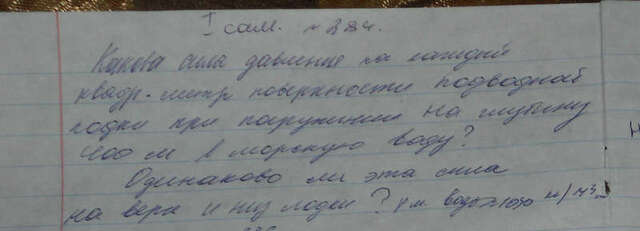 I сам. № 384.
Какова сила давления на каждый
квадр. метр поверхности подводной
лодки при погружении на глубину
100 м в морскую воду?
Одинакова ли эта сила
на верх и низ лодки? м. воды